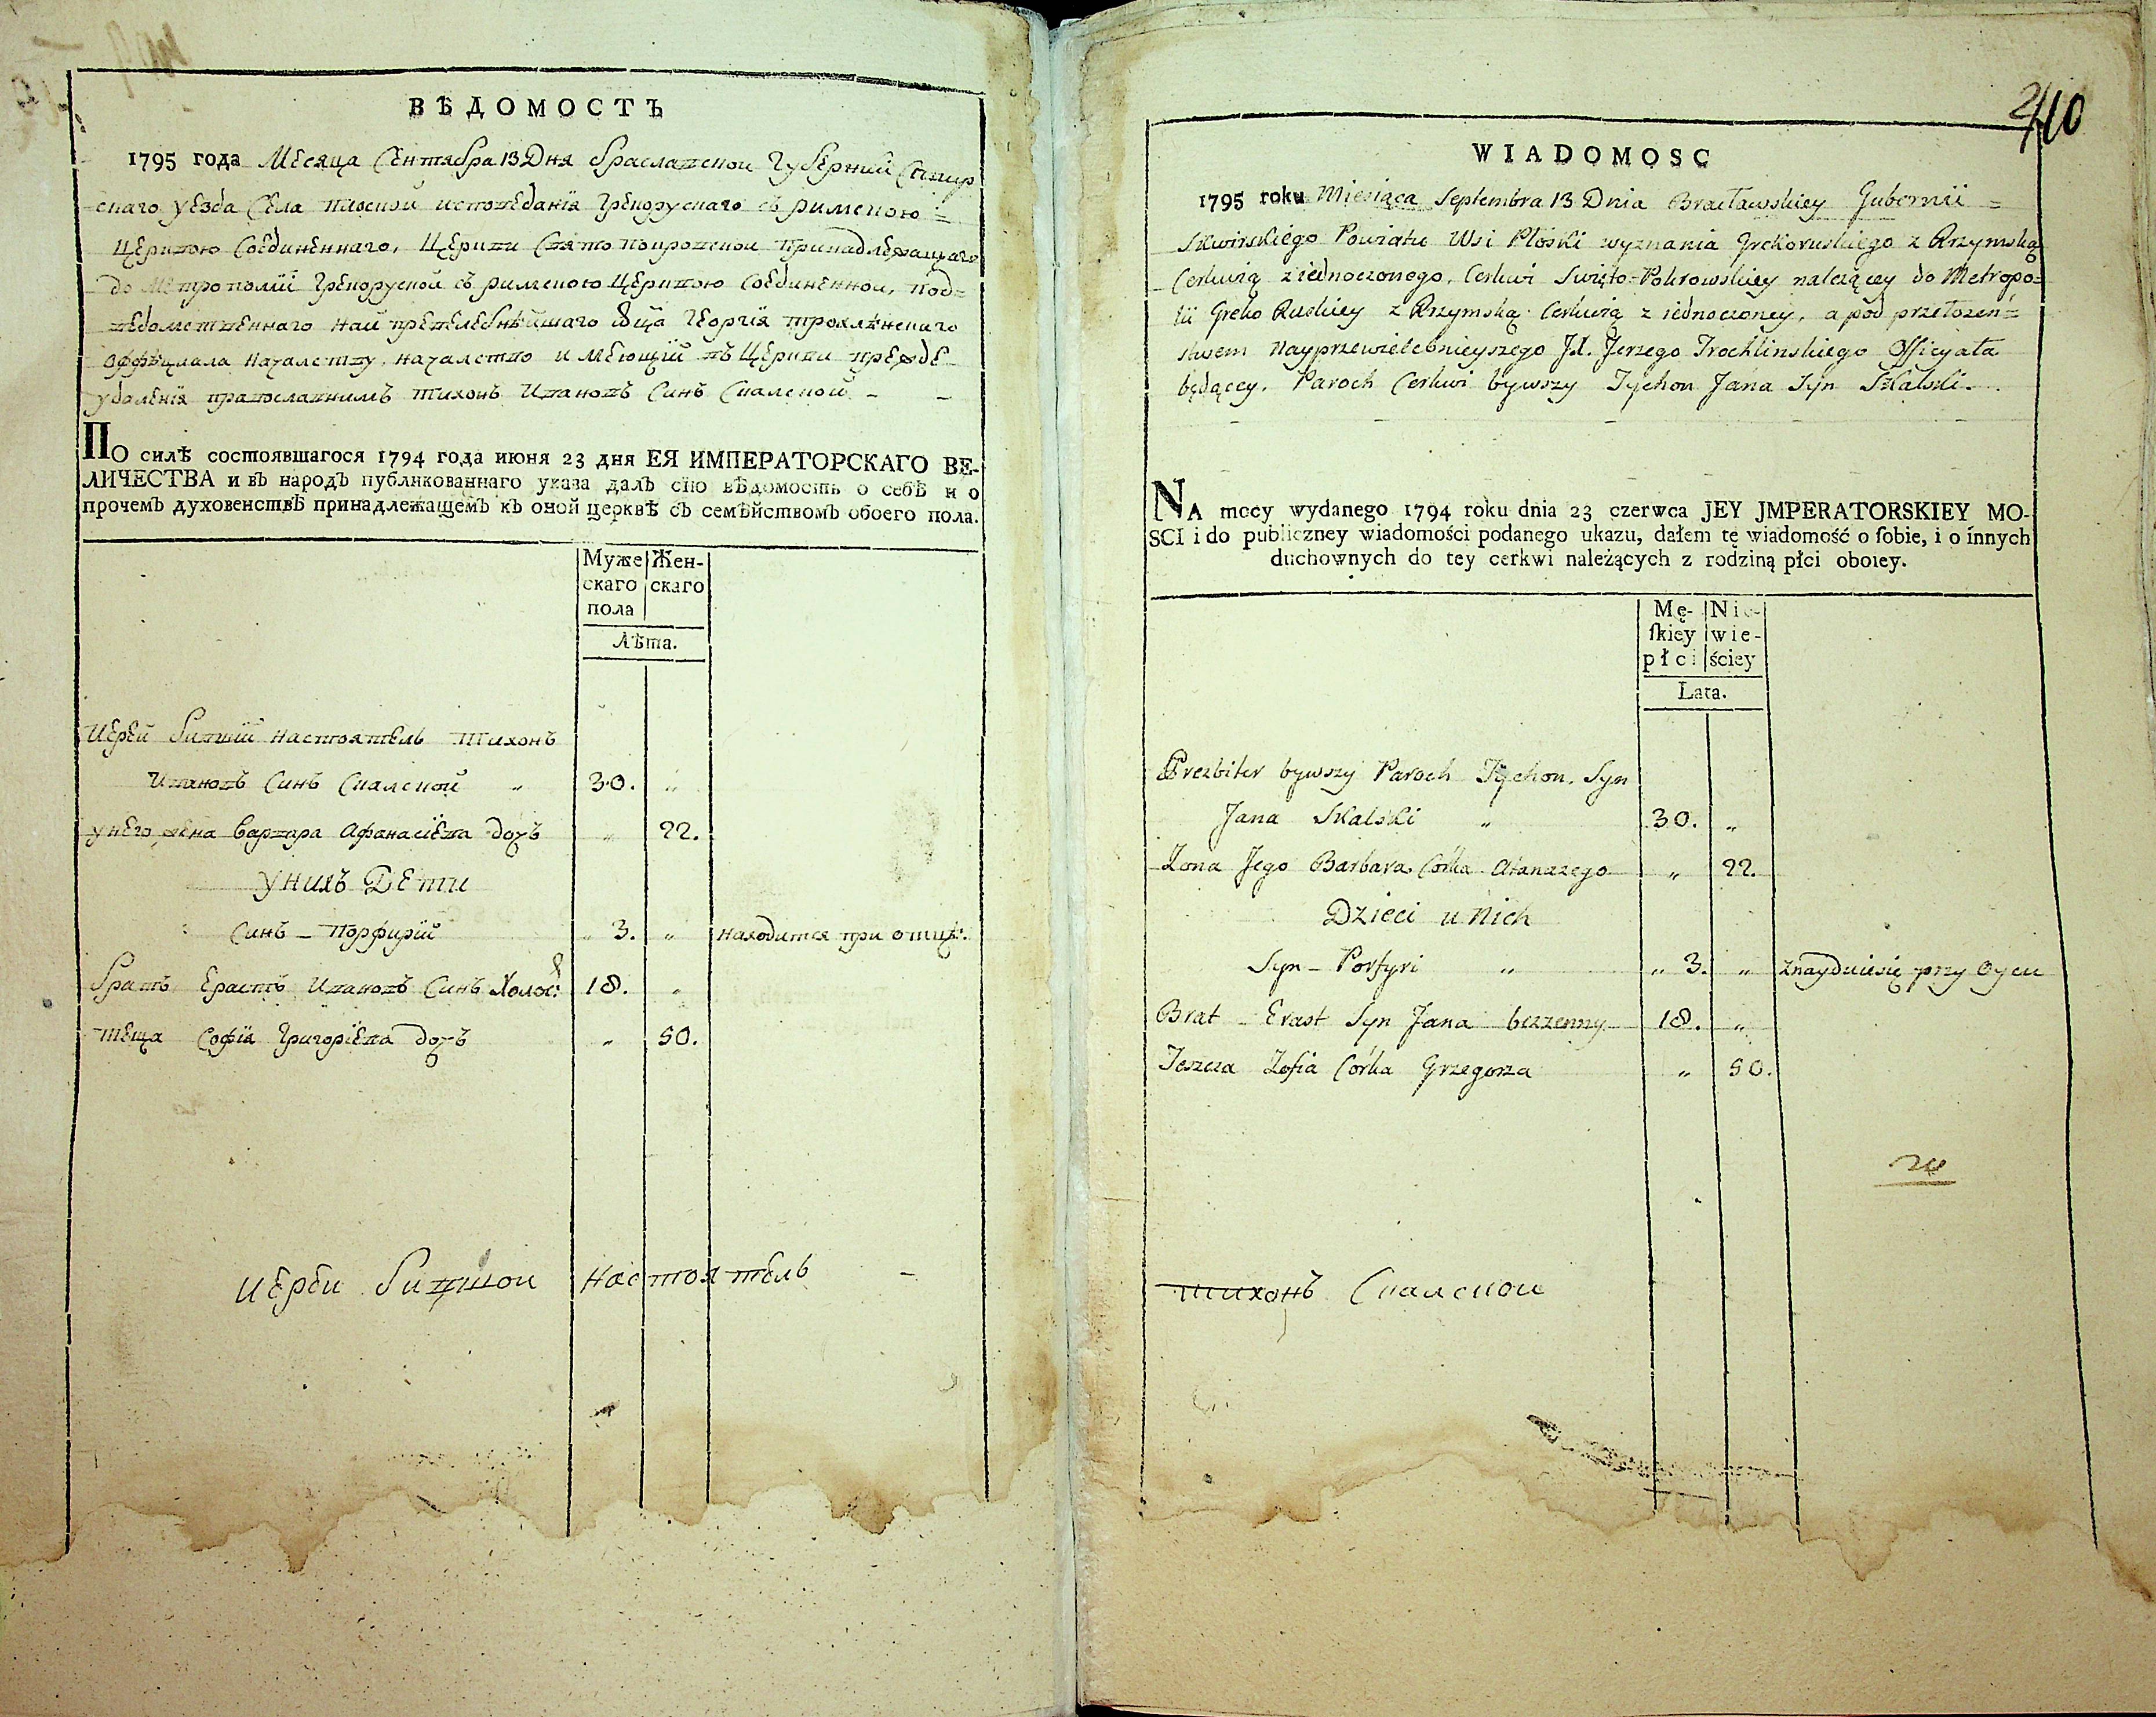 ВѢДОМОСТЬ
1795 года Месяца Сентября 13 Дня Браславской Губерній Сквир
скаго уезда Села Плоской исповеданія Грекорускаго съ римскою =
Церквою Соединеннаго, Церкви Святопокровской принадлежащаго
до Метрополій Грекоруской съ римскою Церквою Соединенной, под=
ведомственнаго Найпревелебнѣйшаго Отца Георгія Трохлѣнскаго
Оффѣцыала началству, началство имеющій въ Церкви прежде
уволенія православнимъ Тихонъ Ивановъ Синъ Скалской – –
ПО силѣ состоявшагося 1794 года июня 23 дня ЕЯ ИМПЕРАТОРСКАГО ВЕ-
ЛИЧЕСТВА и въ народъ публикованнаго указа далъ сію вѣдомость о себѣ и о
прочемъ духовенствѣ принадлежащемъ къ оной церквѣ съ семѣйствомъ обоего пола.
Муже Жен-
скаго скаго
пола
Лѣта.
Иерей бившій настоятель Тихонъ
Ивановъ Синъ Скалской „ 30. „
у него жена Варвара Афанасіева дочь „ 22.
У нихъ Дети
Синъ – Порфирій „ 3. „ находится при отцѣ.
Братъ Ерастъ Ивановъ Синъ Холос: 18. „
Теща Софія Григоріева дочъ „ 50.
Иереи бившои настоятель –
210
WIADOMOSC
1795 roku Miesiąca Septembra 13 Dnia Bracławskiey Gubernii =
Skwirskiego Powiatu Wsi Płóski wyznania Grekoruskiego z Rzymską
Cerkwią ziednoczonego, Cerkwi Swięto-Pokrowskiey należącey do Metropo=
lii Greko Ruskiey z Rzymską Cerkwią z iednoczoney, a pod przełożeń=
stwem Nayprzewielebnieyszego J.X. Jerzego Trochlinskiego Officyała
będącey. Paroch Cerkwi bywszy Tychon Jana Syn Skalski.
NA mocy wydanego 1794 roku dnia 23 czerwca JEY JMPERATORSKIEY MO-
SCI i do publiczney wiadomości podanego ukazu, dałem tę wiadomość o ſobie, i o innych
duchownych do tey cerkwi należących z rodziną płci oboiey.
Mę- Nie-
ſkiey wie-
płci ściey
Lata.
Prezbiter bywszy Paroch Tychon, Syn
Jana Skalski „ 30. „
Zona Jego Barbara Córka Atanazego „ 22.
Dzieci u Nich
Syn – Porfyri „ „ 3. „ Znayduiesię przy Oycu
Brat – Erast Syn Jana bezzenny 18. „
Teszcza Zofia Córka Grzegorza „ 50.
Тихонъ Скалскои